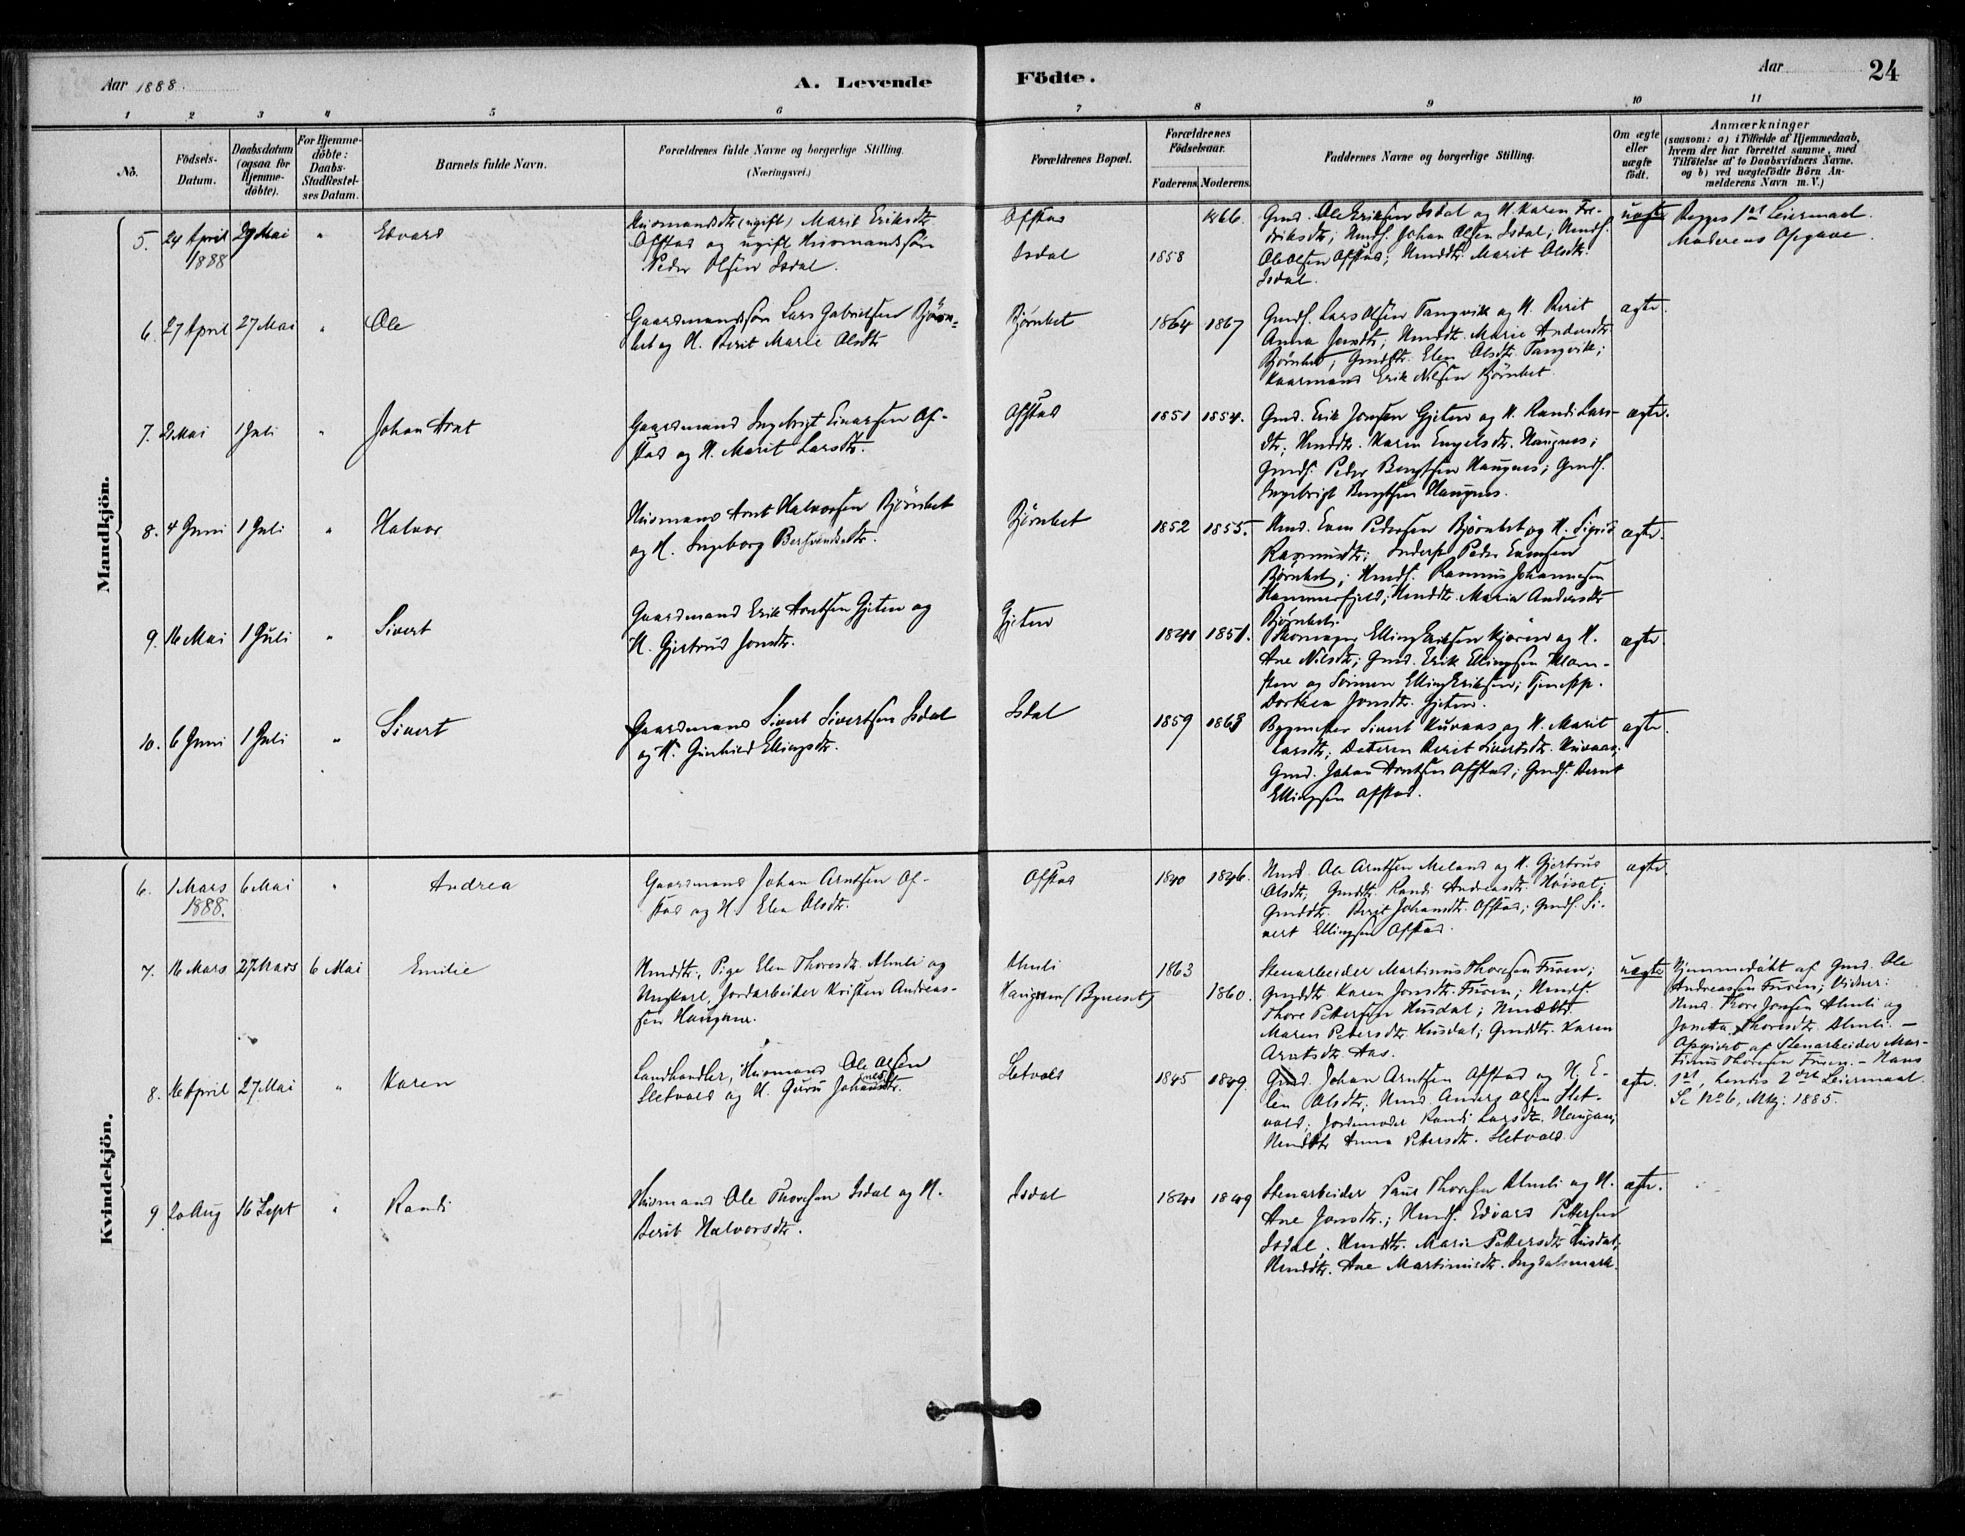 Aar 1888. A. Levende Födte. Aar 24
1 2 3 4 5 6 7 8 9 10 11
No.
Födsels-Datum.
Daabsdatum (ogsaa for Hjemme-döbte).
For Hjemme-döbte: Daabs-Stadfestel-ses Datum.
Barnets fulde Navn.
Forældrenes fulde Navne og borgerlige Stilling.
(Næringsvei.)
Forældrenes Bopæl.
Forældrenes Födselsaar.
Faderens. Moderens.
Faddernes Navne og borgerlige Stilling.
Om ægte eller uægte födt.
Anmærkninger
(saasom: a) i Tilfælde af Hjemmedaab,
hvem der har forrettet samme, med
Tilföielse af to Daabsvidners Navne.
og b) ved uægtefödte Börn An-
melderens Navn m. V.)
Mandkjön.
5. 24 April 1888 29 Mai " Edvard
Husmandsdtr (ugift) Marit Eriksdtr
Ofstad og ugift Husmandssøn
Peder Olsen Isdal.
Ofstad
Isdal
1858 1866.
Gmd. Ole Eriksen Isdal og H. Karen Fre-
driksdtr; Hmds. Johan Olsen Isdal; Hmds.
Ole Olsen Ofstad; Hmddtr. Marit Olsdtr.
Isdal.
uægte
Begges 1ste Leiermaal.
Moderens Opgave.
6. 27 April 27 Mai " Ole
Gaardmandssøn Lars Gabrielsen Bjørn-
bet og H. Berit Marie Olsdtr
Bjørnbet 1864 1867
Gmds. Lars Olsen Tangvik og H. Berit
Anna Jonsdtr; Hmddtr. Marie Andersdtr
Bjørnbet; Gmddtr. Elen Olsdtr. Tangvik;
Kaarmand Erik Nilsen Bjørnbet.
ægte.
7. 2 Mai 1 Juli " Johan Arnt
Gaardmand Ingebrigt Einarsen Of-
stad og H. Marit Larsdtr.
Ofstad 1851 1854.
Gmd. Erik Jonsen Gjeten og H. Randi Lars-
dtr; Hmddtr. Karen Engelsdtr. Haugnes;
Gmds. Peder Bengtsen Haugnes; Gmds.
Ingebrigt Bengtsen Haugnes.
ægte.
8. 4 Juni 1 Juli " Halvor
Husmand Arnt Halvorsen Bjørnbet
og H. Ingeborg Bersvendsdtr.
Bjørnbet 1852 1855.
Hmd. Even Pedersen Bjørnbet og H. Sigrid
Rasmusdtr; Inderst Peder Evensen
Bjørnbet; Hmds. Rasmus Johannesen
Hammerfjeld; Hmddtr. Maria Andersdtr
Bjørnbet.
ægte.
9. 16 Mai 1 Juli " Sivert
Gaardmand Erik Arntsen Gjeten og
H. Gjertrud Jonsdtr.
Gjeten 1841 1851.
Skomager Elling Eriksen Kjøren og H.
Ane Nilsdtr; Gmd. Erik Ellingsen Klam-
sten og Sønnen Elling Eriksen; Tjenestp.
Dorthea Jonsdtr. Gjeten.
ægte
10. 6 Juni 1 Juli " Sivert
Gaardmand Sivert Sivertsen Isdal
og H. Gunhild Ellingsdtr.
Isdal 1859 1863
Bygmester Sivert Kuvaas og H. Marit
Larsdtr; Datteren Berit Sivertsdtr. Kuvaas;
Gmd. Johan Arntsen Ofstad; Gmds. Bernt
Ellingsen Ofstad.
ægte.
Kvindekjön.
6. 1 Mars 1888. 6 Mai " Andrea
Gaardmand Johan Arntsen Of-
stad og H. Elen Olsdtr.
Ofstad 1840 1846.
Hmd. Ole Arntsen Meland og H. Gjertrud
Olsdtr; Gmddtr. Randi Andreasdtr. Høisæt;
Gmddtr. Berit Johansdtr. Ofstad; Gmds. Si-
vert Ellingsen Ofstad.
ægte.
7. 16 Mars 27 Mars 6 Mai Emilie
Hmddtr., Pige Elen Thoresdtr. Almli og
Ungkarl, Jordarbeider Kristen Andreas-
sen Haugan.
Almli
Haugan (Bynesset)
1863 1860.
Stenarbeider Martinus Thoresen Furen;
Gmddtr Karen Jonsdtr. Furen; Hmds.
Thore Pettersen Husdal; Hmddtr.
Maren Petersdtr. Husdal; Gmddtr. Karen
Arntsdtr. Aas.
uægte
Hjemmedøbt af Gmd. Ole
Andreassen Furen; Vidner:
Hmd. Thore Jonsen Almli og
Jonetta Thoresdtr. Almli. -
Opgivet af Stenarbeider Mar-
tinus Thoresen Furen. - Hans
1ste, hendes 2det Leiermaal.
Se No 6, Mkj. 1885.
8. 16 April 27 Mai " Karen
Landhandler, Husmand Ole Olsen
Sletvold og H. Guru Johannesdtr.
Sletvold 1845 1849.
Gmd. Johan Arntsen Ofstad og H. E-
len Olsdtr; Hmd. Anders Olsen Slet-
vold; Jordemoder Randi Larsdtr. Haugan;
Hmddtr Anna Petersdtr. Sletvold.
ægte.
9 20 Aug 16 Sept " Randi
Husmand Ole Thoresen Isdal og H.
Berit Halvorsdtr.
Isdal 1841 1849
Stenarbeider Paul Thoresen Almli og H.
Ane Jonsdtr.; Hmds. Edvard Pettersen
Isdal; Hmddtr. Marie Pettersdtr Husdal;
Hmddtr. Ane Martinusdtr. Ingdalsmark.
ægte.